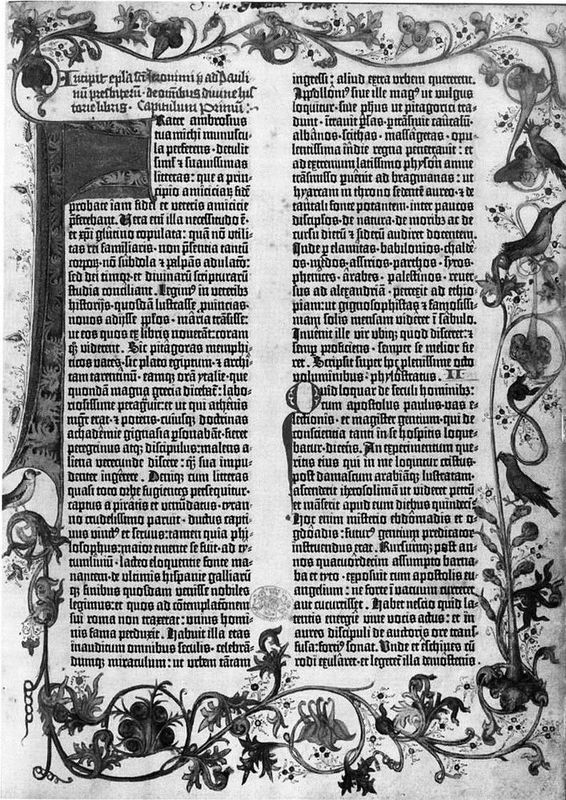 Incipit epistola sancti iheronimi ad Pauli
nū presbiterū · de omnibus divine his
torie libris · Capitulum Primū:
Frater ambrosius
tua michi munuscu
la perferens · detulit
sim̄l ⁊ suavissimas
litteras: que a prin-
cipio amiciciaꝝ fidē
probate iam fidei et veteris amicicie
p̄ferebant. Vera enī illa necessitudo ē·
et xp̄i glutino copulata: quā nō utili-
tas rei familiaris · non p̄sentia tantū
corpoꝝ · nō subdola ⁊ palpās adulatō:
sed dei timor · et divinaꝝ scripturarū
studia conciliant. Legim⁹ in veteribꝫ
historijs · quosdā lustrasse p̄vincias ·
novos adijsse p̄p̄los · maria trāsisse:
ut eos quos ex libris noverāt: coram
qͦꝫ viderent. Sic pitagoras memphi-
ticos vates · sic plato egiptum · ⁊ archi-
tam tarentinū · eamqꝫ oram ytalie · que
quondā magna grecia dicebat̄: labo-
riosissime peragravit: et ut qui athenis
mḡr erat · ⁊ potens · cuiusqꝫ doctrinas
achademie gignasia p̄sonabāt · fieret
peregrinus atqꝫ discipulus: malens a-
liena verecunde discere · qͣꝫ sua impu-
denter ingerere. Deniqꝫ cum litteras
quasi toto orbe fugientes persequitur ·
captus a piratis et venūdatus · tyran-
no crudelissimo paruit · ductus capti-
vus vinct⁹ et servus: tamen quia phi-
losophus: maior emente se fuit · ad ty-
tumlivíū · lacteo eloquentie fonte ma-
nantem · de ultimis hispanie galliarū-
qꝫ finibus quosdam venisse nobiles
legimus: et quos ad cōtemplatōem
sui roma non traxerat: unius homi-
nis fama perduxit. Habuit illa etas
inauditum omnibus seculis · celebrā-
dumqꝫ miraculum: ut urbem tātam
ingressi: aliud extra urbem quererent.
Apollonī⁹ sive ille mag⁹ ut vulgus
loquitur · sive ph̄us ut pitagorici tra-
dunt · intravit p̄sas · p̄trāsivit caucasū·
albanos · scithas · massagetas · opu-
lentissima indie regna penetravit: et
ad extremum latissimo physon amne
trāsmisso p̄venit ad bragmanas: ut
hyarcam in throno sedentē aureo · ⁊ de
tantali fonte potantem · inter paucos
discip̄los · de natura · de moribꝫ ac de
cursu dierū ⁊ siderū audiret docentem.
Inde p̄ elamitas · babilonios · chalde-
os · medos · assirios · parthos · syros·
phenices · arabes · palestinos · rever-
sus ad alexandriā · perrexit ad ethio-
piam: ut gignosophistas ⁊ famosissi-
mam solis mensam videret ī sabulo.
Invenit ille vir ubiqꝫ quod disceret: ⁊
semp̄ proficiens · semper se melior fie-
ret. Scripsit super hoc plenissime octo
voluminibus · phylostratus. II
Quid loquar de seculi hominibꝫ:
cum apostolus paulus · vas e-
lectionis · et magister gentium · qui de
conscientia tanti in se hospitis loque-
batur · dicens. An experimentum que-
ritis eius qui in me loquitur cristus.
post damascum arabiāqꝫ lustratam:
ascenderit iherosolimā ut videret petrū
⁊ manserit apud eum diebus quindeci:
Hoc enim misterio ebdomadis et o-
gdoadis: futur⁹ gentium predicator
instruendus erat. Rursumqꝫ post an-
nos quatuordecim assumpto barna-
ba et tyto · exposuit cum apostolis eu-
angelium: ne forte ī vacuum curreret
aut cucurrisset. Habet nescio quid la-
tentis energie viue vocis actus: et in
aures discipuli de auctoris ore trans-
fusa: forti⁹ sonat. Unde et eschines cū
rodi exularet · et legeret̄ illa demostenis